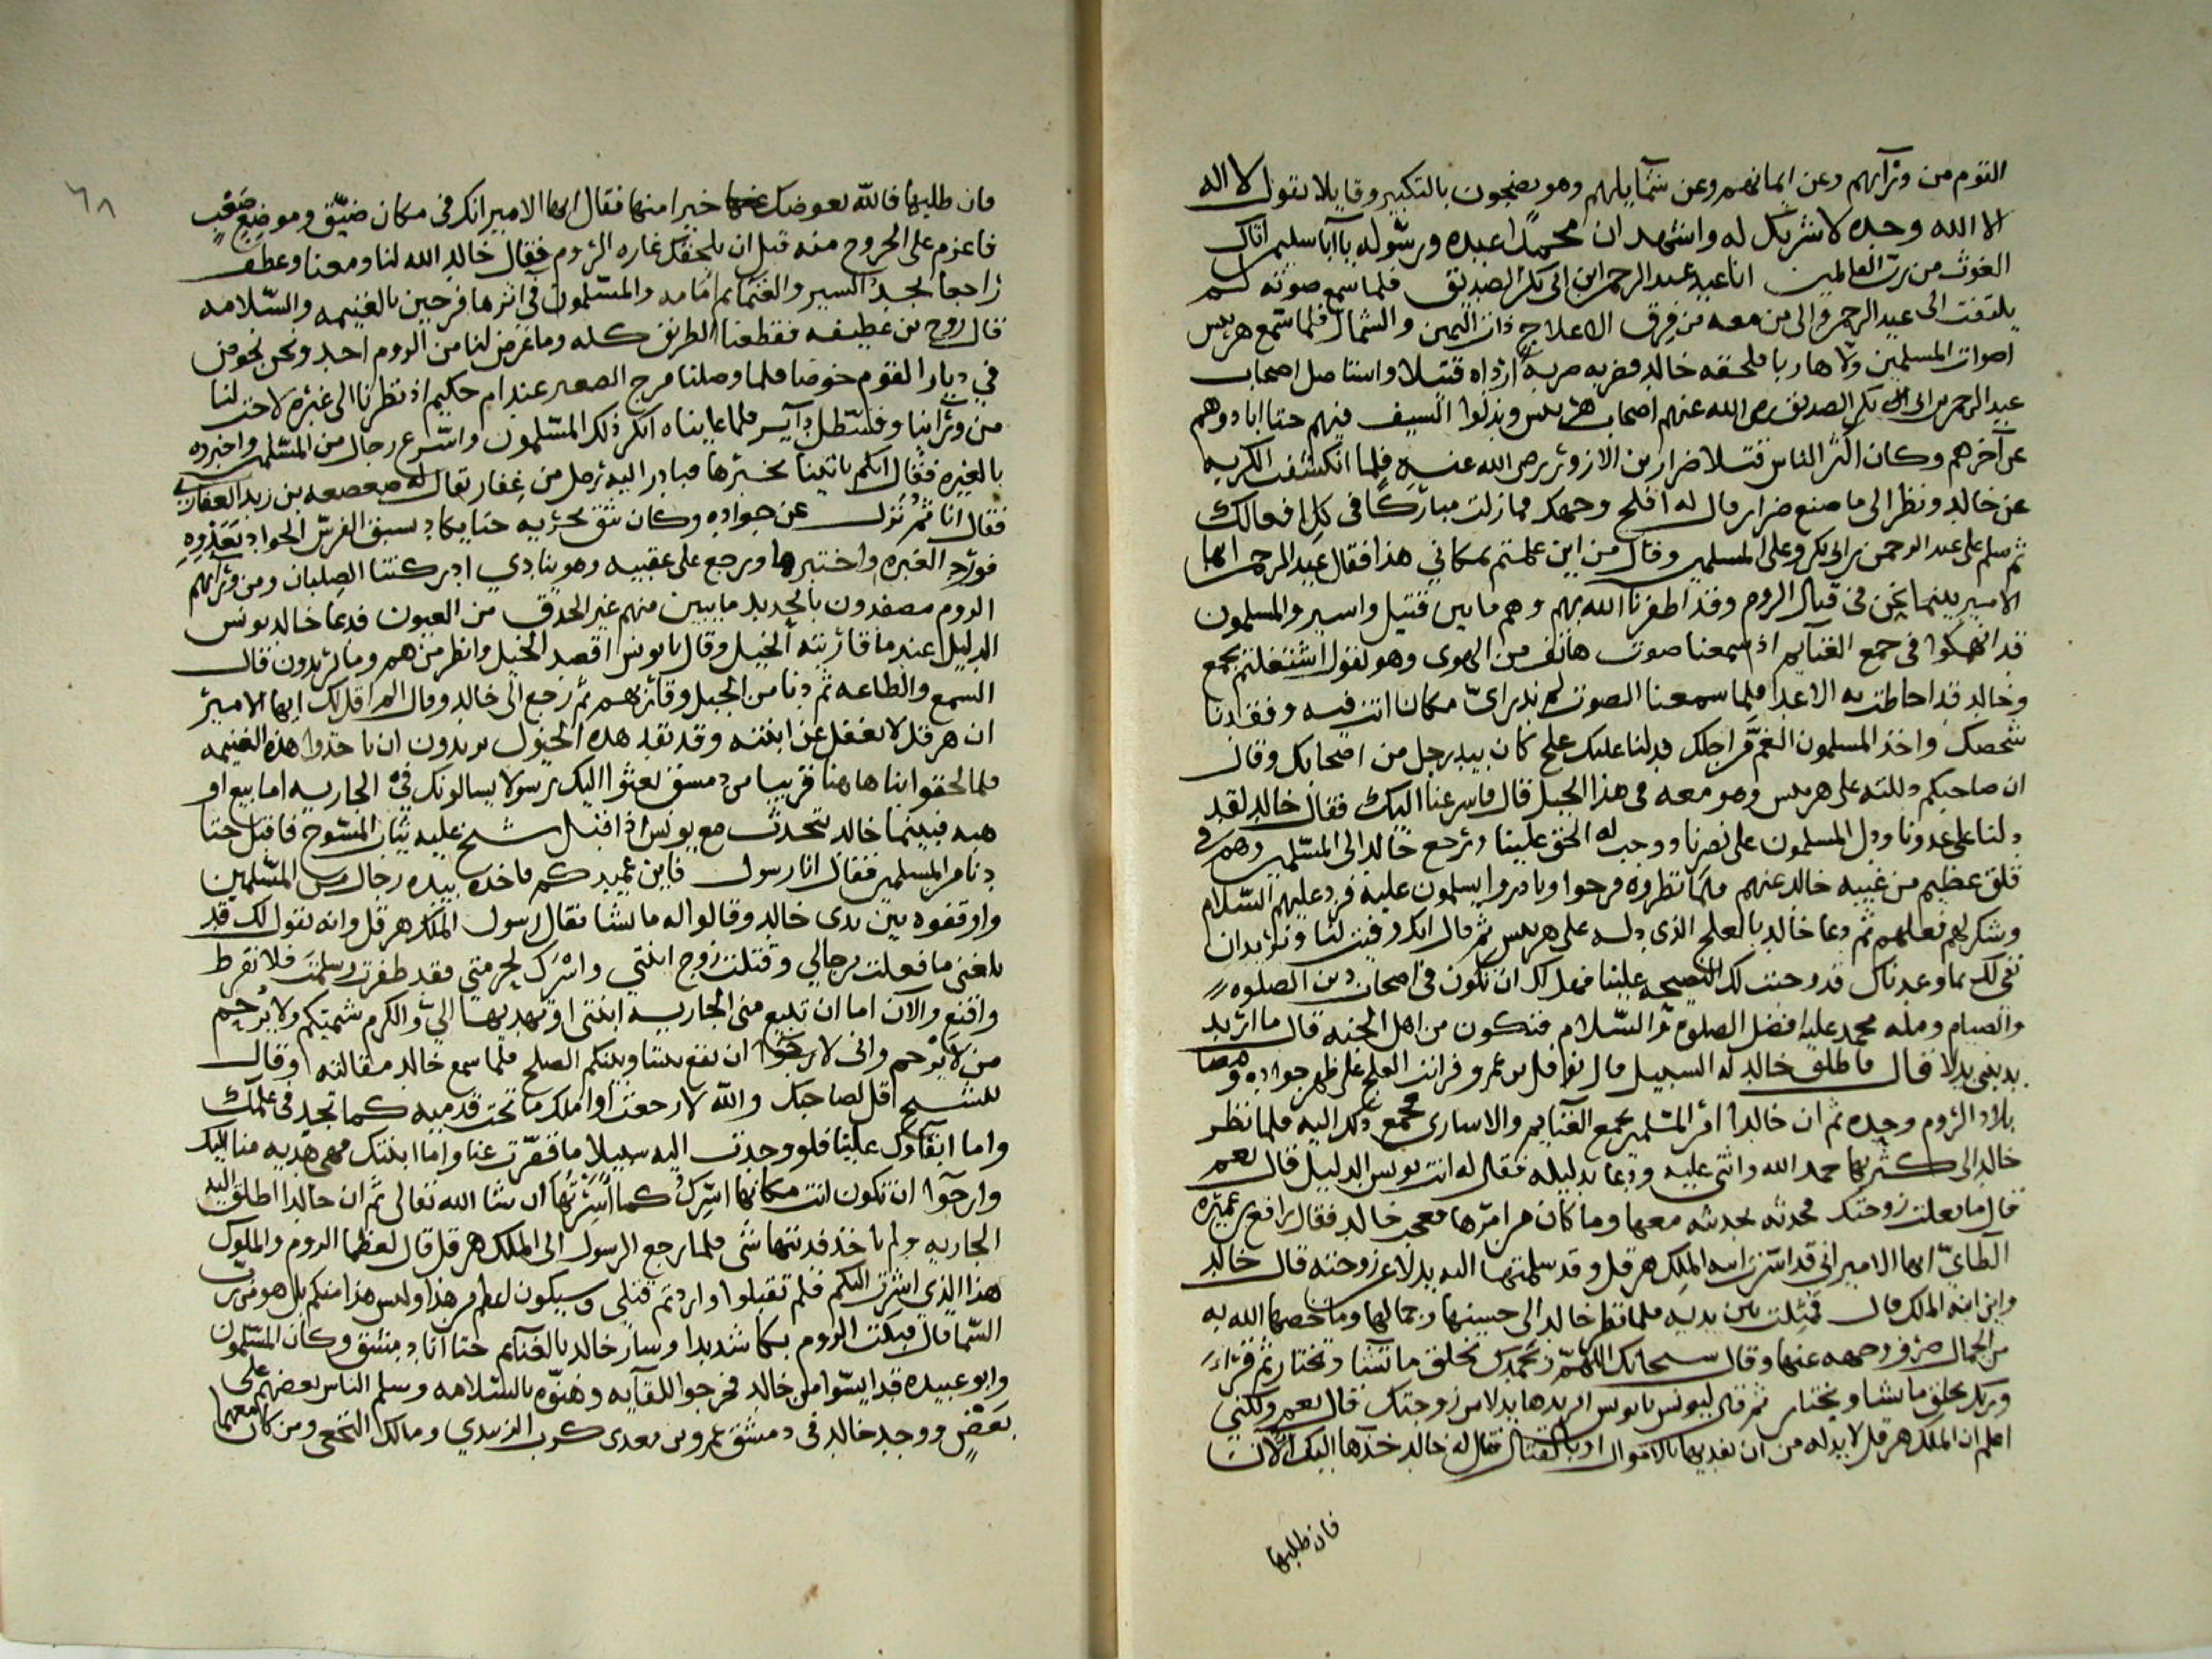 القوم من ورآيهم وعن ايمانهم وعن شمآيلهم وهم يضجون بالتكبير وقايلا يقول لا اله
الا الله وحده لا شريك له واشهد ان محمدا عبده ورسوله يا آبا سليمن اتاك
الغوث من رب العالمين انا عبد الرحمن ابن ابى بكر الصديق فلما سمع صوته لم
يلتفت الى عبد الرحمن والى من معه من فرق الاعلاج ذات اليمين والشمال فلما سمع هربيس
اصوات المسلمين ولا هاربا فلحقه خالد فضربه ضربة ارداه قتيلا واستاصل اصحاب
عبد الرحمن ابن ابى بكر الصديق رضى الله عنهم اصحاب هربيس وبذلوا السيف فيهم حتا ابادوهم
عن آخرهم وكان اكثر الناس قتلا ضرار بن الازور رضى الله عنه فلما انكشفت الكربه
عن خالد ونظر الى ما صنع ضرار قال له افلح وجهك فما زلت مباركا فى كل افعالك
ثم سلم على عبد الرحمن بن ابى بكر وعلى المسلمين وقال من اين علمتم بمكاني هذا فقال عبد الرحمن ايها
الامير بينما نحن فى قتال الروم وقد اظفرنا الله بهم وهم ما بين قتيل واسير والمسلمون
قد انهمكوا فى جمع الغنايم اذ سمعنا صوت هاتف من الهوى وهو يقول اشتغلتم بجمع
وخالد قد احاطت به الاعدا فلما سمعنا الصوت لم ندر اىّ مكان انت فيه وفقدنا
شخصك واخذ المسلمون الغم من اجلك فدلنا عليك علج كان بيد رجل من اصحابك وقال
ان صاحبكم دللته على هربيس وهو معه فى هذا الجبل قال فاسرعنا اليك فقال خالد لقد
دلنا على عدونا ودل المسلمون على نصرنا ووجب له الحق علينا ورجع خالد الى المسلمين وهم فى
قلق عظيم من غيبه خالد عنهم فلما نظروه فرحوا وبادروا يسلمون عليه فرد عليهم السلام
وشكر لهم فعلهم ثم دعا خالد بالعلج الذى دله على هربيس ثم قال انك وفيت لنا ونريد ان
نفى لك بما وعدناك قد وجبت لك النصيحه علينا فهل لك ان تكون فى اصحاب دين الصلوه
والصيام ومله محمد عليه افضل الصلوه والسلام فتكون من اهل الجنه قال ما اريد
بدينى بدلا قال فاطلق خالد له السبيل قال نوفل بن عمرو فرايت العلج على ظهر جواده ومضا
بلاد الروم وحده ثم ان خالدا امر المسلمين بجمع الغنايم والاسارى فجمع ذلك اليه فلما نظر
خالد الى كثرتها حمد الله واثنى عليه ودعا بدليله فقال له انت يونس الدليل قال نعم
قال ما فعلت زوجتك فحدثه بحديثه معها وما كان من امرها فعجب خالد فقال رافع بن عميره
الطايىّ ايها الامير انى قد اسرت ابنه الملك هرقل وقد سلمتها اليه بدلا عن زوجته قال خالد
واين ابنه الملك قال فمثلت بين يديه فلما نظر خالد الى حسنها وجمالها وما خصها الله به
من الجمال صرف وجهه عنها وقال سبحانك اللهم وبحمدك تخلق ما تشا وتختار ثم قراء
وربك يخلق ما يشا ويختار ثم قال ليونس يا يونس اتريدها بدلا من زوجتك قال نعم ولكنى
اعلم ان الملك هرقل لا بد له من ان يفديها بالاموال او بالقتال فقال له خالد خذها اليك الآن
فان طلبها
٦٨
فان طلبها فالله يعوضك عنها خيرا منها فقال ايها الامير انك فى مكان ضيّق وموضع صعب
فاعزم على الخروج منه قبل ان يلحقك غاره الروم فقال خالد الله لنا ومعنا وعطف
راجعا يجدّ السير والغنايم امامه والمسلمون فى اثرها فرحين بالغنيمه والسلامه
قال روح بن عطيفه فقطعنا الطريق كله وما عرض لنا من الروم احد ونحن نخوض
في ديار القوم خوضا فلما وصلنا مرج الصفر عند ام حكيم اذ نظرنا الى غبره لاحت لنا
من ورآينا وقسطل دآير فلما عايناه انكر ذلك المسلمون واسرع رجال من المسلمين واخبروه
بالغبره فقال ايكم ياتينا بخبرها فبادر اليه رجل من غفار يقال له صعصعه بن زيد الغفارى
فقال انا ثم نزل عن جواده وكان يثق بجريه حتا يكاد يسبق الفرس الجواد بعدوه
فورد الغبره واختبرها ورجع على عقبيه وهو ينادي ادركتنا الصلبان ومن ورآيهم
الروم مصفدون بالحديد ما يبين منهم غير الحدق من العيون فدعا خالد يونس
الدليل عند ما قاربته الخيل وقال يا يونس اقصد الخيل وانظر من هم وما يريدون قال
السمع والطاعه ثم دنا من الخيل وقاربهم ثم رجع الى خالد وقال الم اقل لك ايها الامير
ان هرقل لا يغفل عن ابنته وقد نفد هذه الخيول يريدون ان ياخدوا هذه الغنيمه
فلما لحقوا بنا هاهنا قريبا من دمشق بعثوا اليك رسولا يسالونك فى الجاريه اما بيع او
هبه فبينما خالد يتحدث مع يونس اذ اقبل شيخ عليه ثياب المسوح فاقبل حتا
دنا من المسلمين فقال انا رسول فاين عميدكم فاخذ بيده رجال من المسلمين
واوقفوه بين يدى خالد وقالوا له ما تشا فقال رسول الملك هرقل وانه يقول لك قد
بلغنى ما فعلت برجالي وقتلت زوج ابنتي واسرك لحرمتى فقد ظفرت وسلمت فلا تفرط
واقنع والآن اما ان تبيع منى الجاريه ابنتى او تهديها الىّ والكرم شيمتكم ولا يرحم
من لا يرحم وانى لارجوا ان يقع بيننا وبينكم الصلح فلما سمع خالد مقالته وقال
للشيخ اقل لصاحبك والله لا رجعت او املك ما تحت قدميه كما تجد فى علمك
واما ابقآوك علينا فلو وجدت اليه سبيلا ما قصّرت عنا واما ابنتك فهى هديه منا اليك
وارجوا ان تكون انت مكانها اسرك كما اسرتها ان شا الله تعالى ثم ان خالدا اطلق اليه
الجاريه ولم ياخذ فديتها شى فلما رجع الرسول الى الملك هرقل قال لعظما الروم والملوك
هذا الذي اشرت اليكم فلم تقبلوا واردتم قتلى وسيكون اعظم من هذا وليس هذا منكم بل هو من رب
السما قال فبكت الروم بكا شديدا وسار خالد بالغنآيم حتا اتا دمشق وكان المسلمون
وابو عبيده قد ايسوا من خالد فخرجوا للقآيه وهنوه بالسلامه وسلم الناس بعضهم على
بعض ووجد خالد فى دمشق عمرو بن معدى كرب الزبيدي ومالك النخعى ومن كان معهما